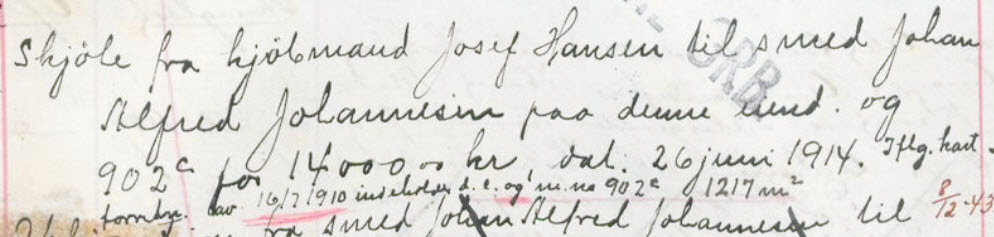 Skjöte fra kjöbmand Josef Hansen til smed Johan
Alfred Johannesen paa denne eiend. og
902c for 14000.00 kr dat. 26 juni 1914. Iflg. kart-
forretn. av 16/7 1910 indeholder d. e. og m. no 902c 1217 m²
fra smed Johan Alfred Johannesen til 8/12-43